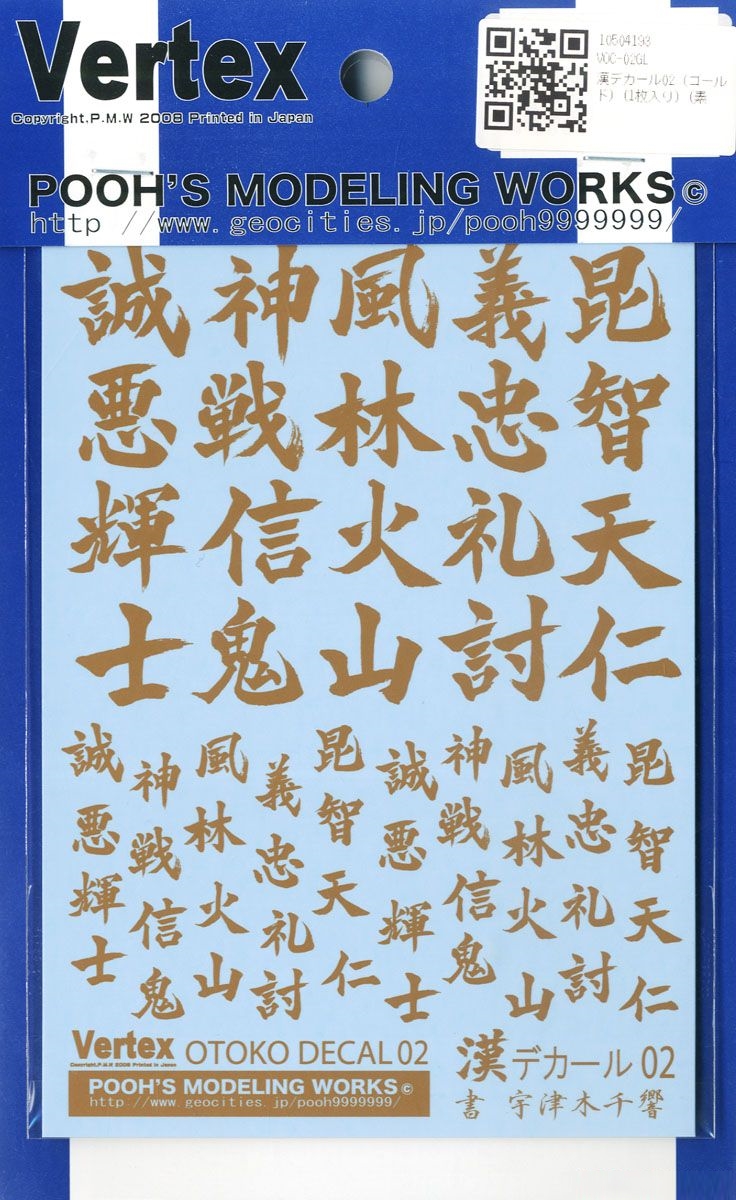 Vertex
Copyright.P.M.W 2008 Printed in Japan
10504193
VOC-02GL
漢デカール02 (ゴール
ド) (1枚入り) (素
POOH'S MODELING WORKS©
http //www.geocities.jp/pooh9999999/
誠 神 風 義 昆
悪 戦 林 忠 智
輝 信 火 礼 天
士 鬼 山 討 仁
誠 神 風 義 昆 誠 神 風 義 昆
悪 戦 林 忠 智 悪 戦 林 忠 智
輝 信 火 礼 天 輝 信 火 礼 天
士 鬼 山 討 仁 士 鬼 山 討 仁
Vertex
Copyright.P.M.W 2008 Printed in Japan
OTOKO DECAL 02
POOH'S MODELING WORKS©
http://www.geocities.jp/pooh9999999/
漢デカール 02
書 宇津木千響